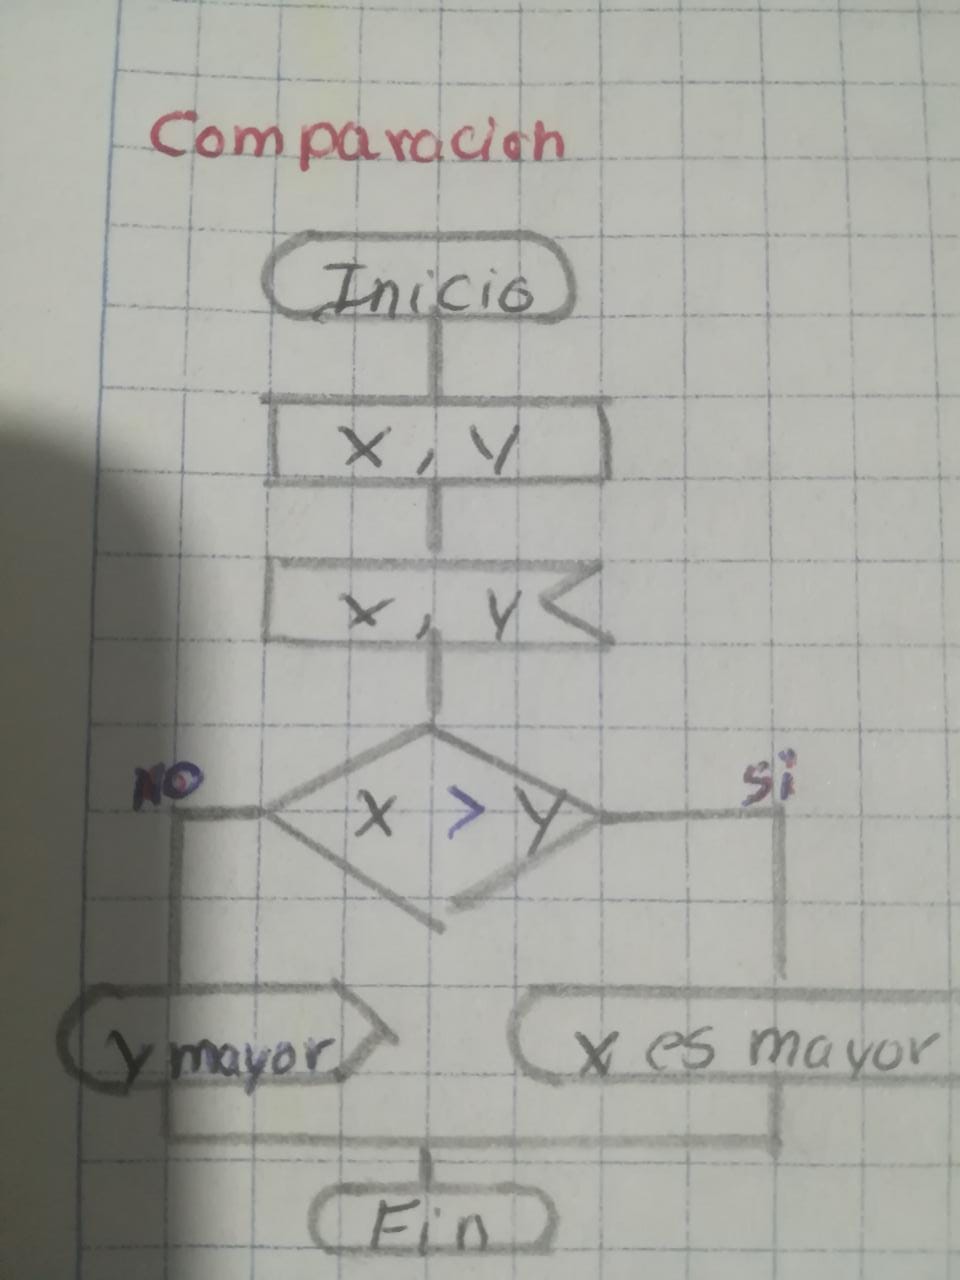 Comparacion
Inicio
X, Y
X, Y
NO
Si
X > Y
Y mayor
X es mayor
Fin